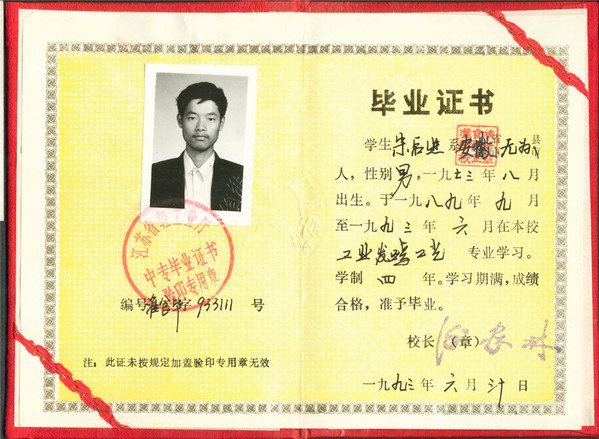 江苏省
中专毕业证书
验印专用章
编号 字 933111 号
注：此证未按规定加盖验印专用章无效
毕业证书
学生 系 安徽省无为县
人，性别男，一九七三年八月
出生。于一九八九年九月
至一九九三年六月在本校
工业发酵工艺 专业学习。
学制 四 年。学习期满，成绩
合格，准予毕业。
校长 （章）
一九九三年 六 月 日